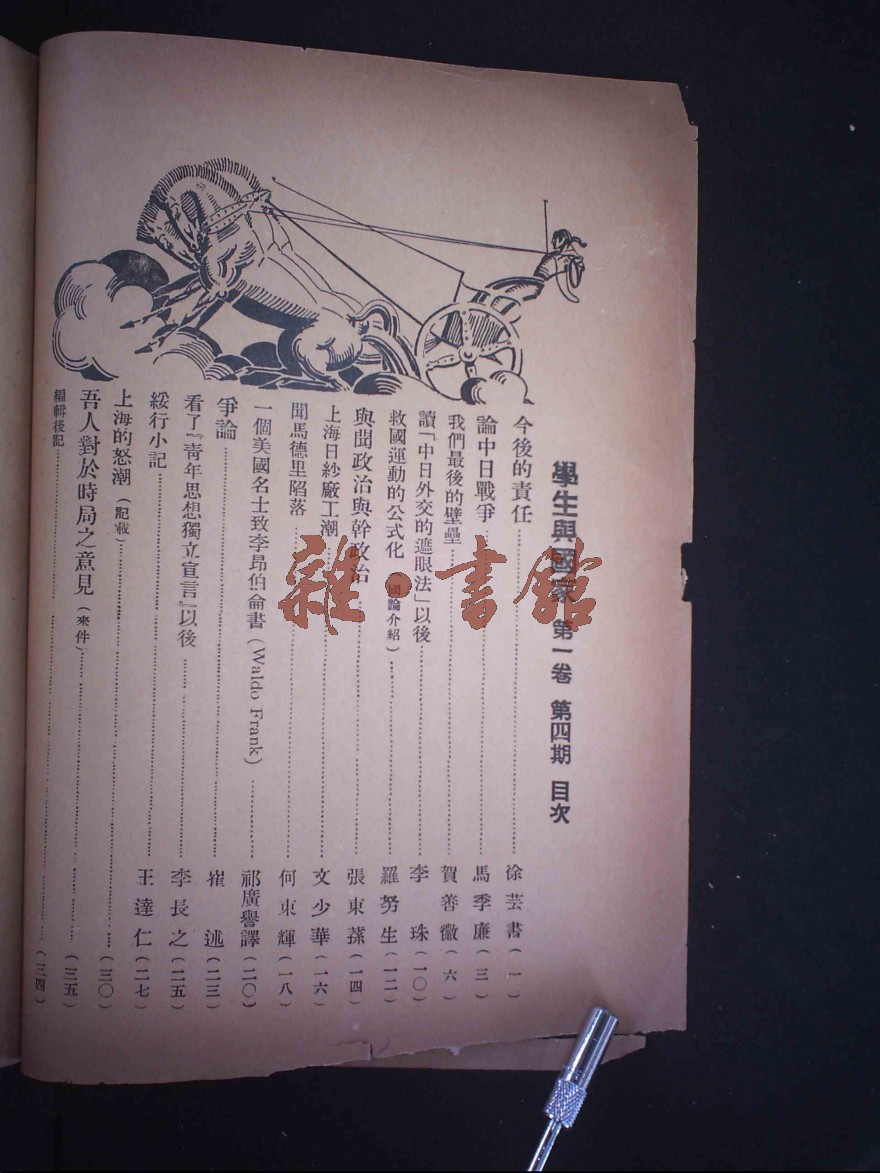 學生與國家 第一卷 第四期 目次
今後的責任……徐芸書(一)
論中日戰爭……馬季廉(三)
我們最後的壁壘……賀善徽(六)
讀「中日外交的遮眼法」以後……李 珠(一〇)
救國運動的公式化(國論介紹)……羅努生(一二)
與聞政治與幹政治……張東蓀(一四)
上海日紗廠工潮……文少華(一六)
聞馬德里陷落……何東輝(一八)
一個美國名士致李昂伯侖書(Waldo Frank)……祁廣譽譯(二〇)
爭論……崔 述(二三)
看了『青年思想獨立宣言』以後……李長之(二五)
綏行小記……王達仁(二七)
上海的怒潮(記載)……(三〇)
吾人對於時局之意見(來件)……(三五)
編輯後記……(三四)
雜·書館